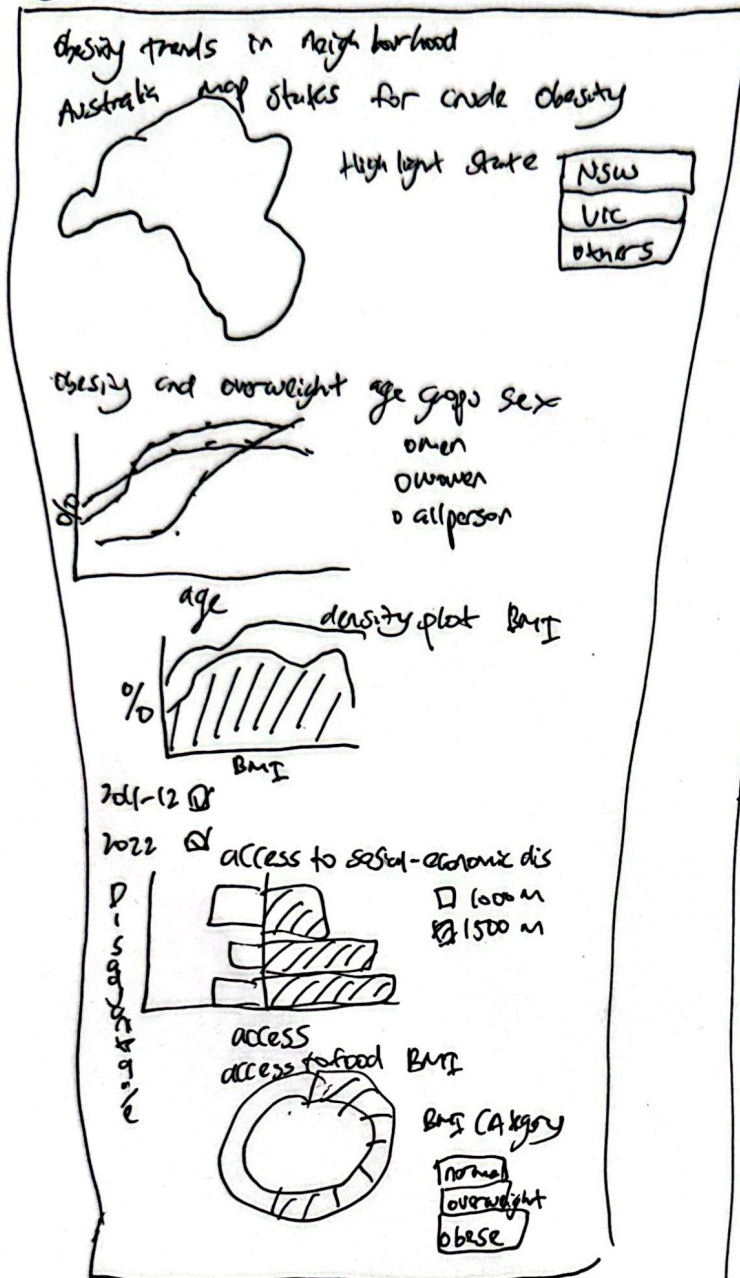 Obesity trends in neighbourhood
Australia map states for crude obesity
Highlight state
NSW
VIC
others
Obesity and overweight age gropu sex
o men
o women
o allperson
%
age
density plot BMI
%
BMI
2011-12
2022
access to sosial-economic dis
1000 m
1500 m
Disadvantage
access
access to food BMI
BMI CAtgory
normal
overweight
obese